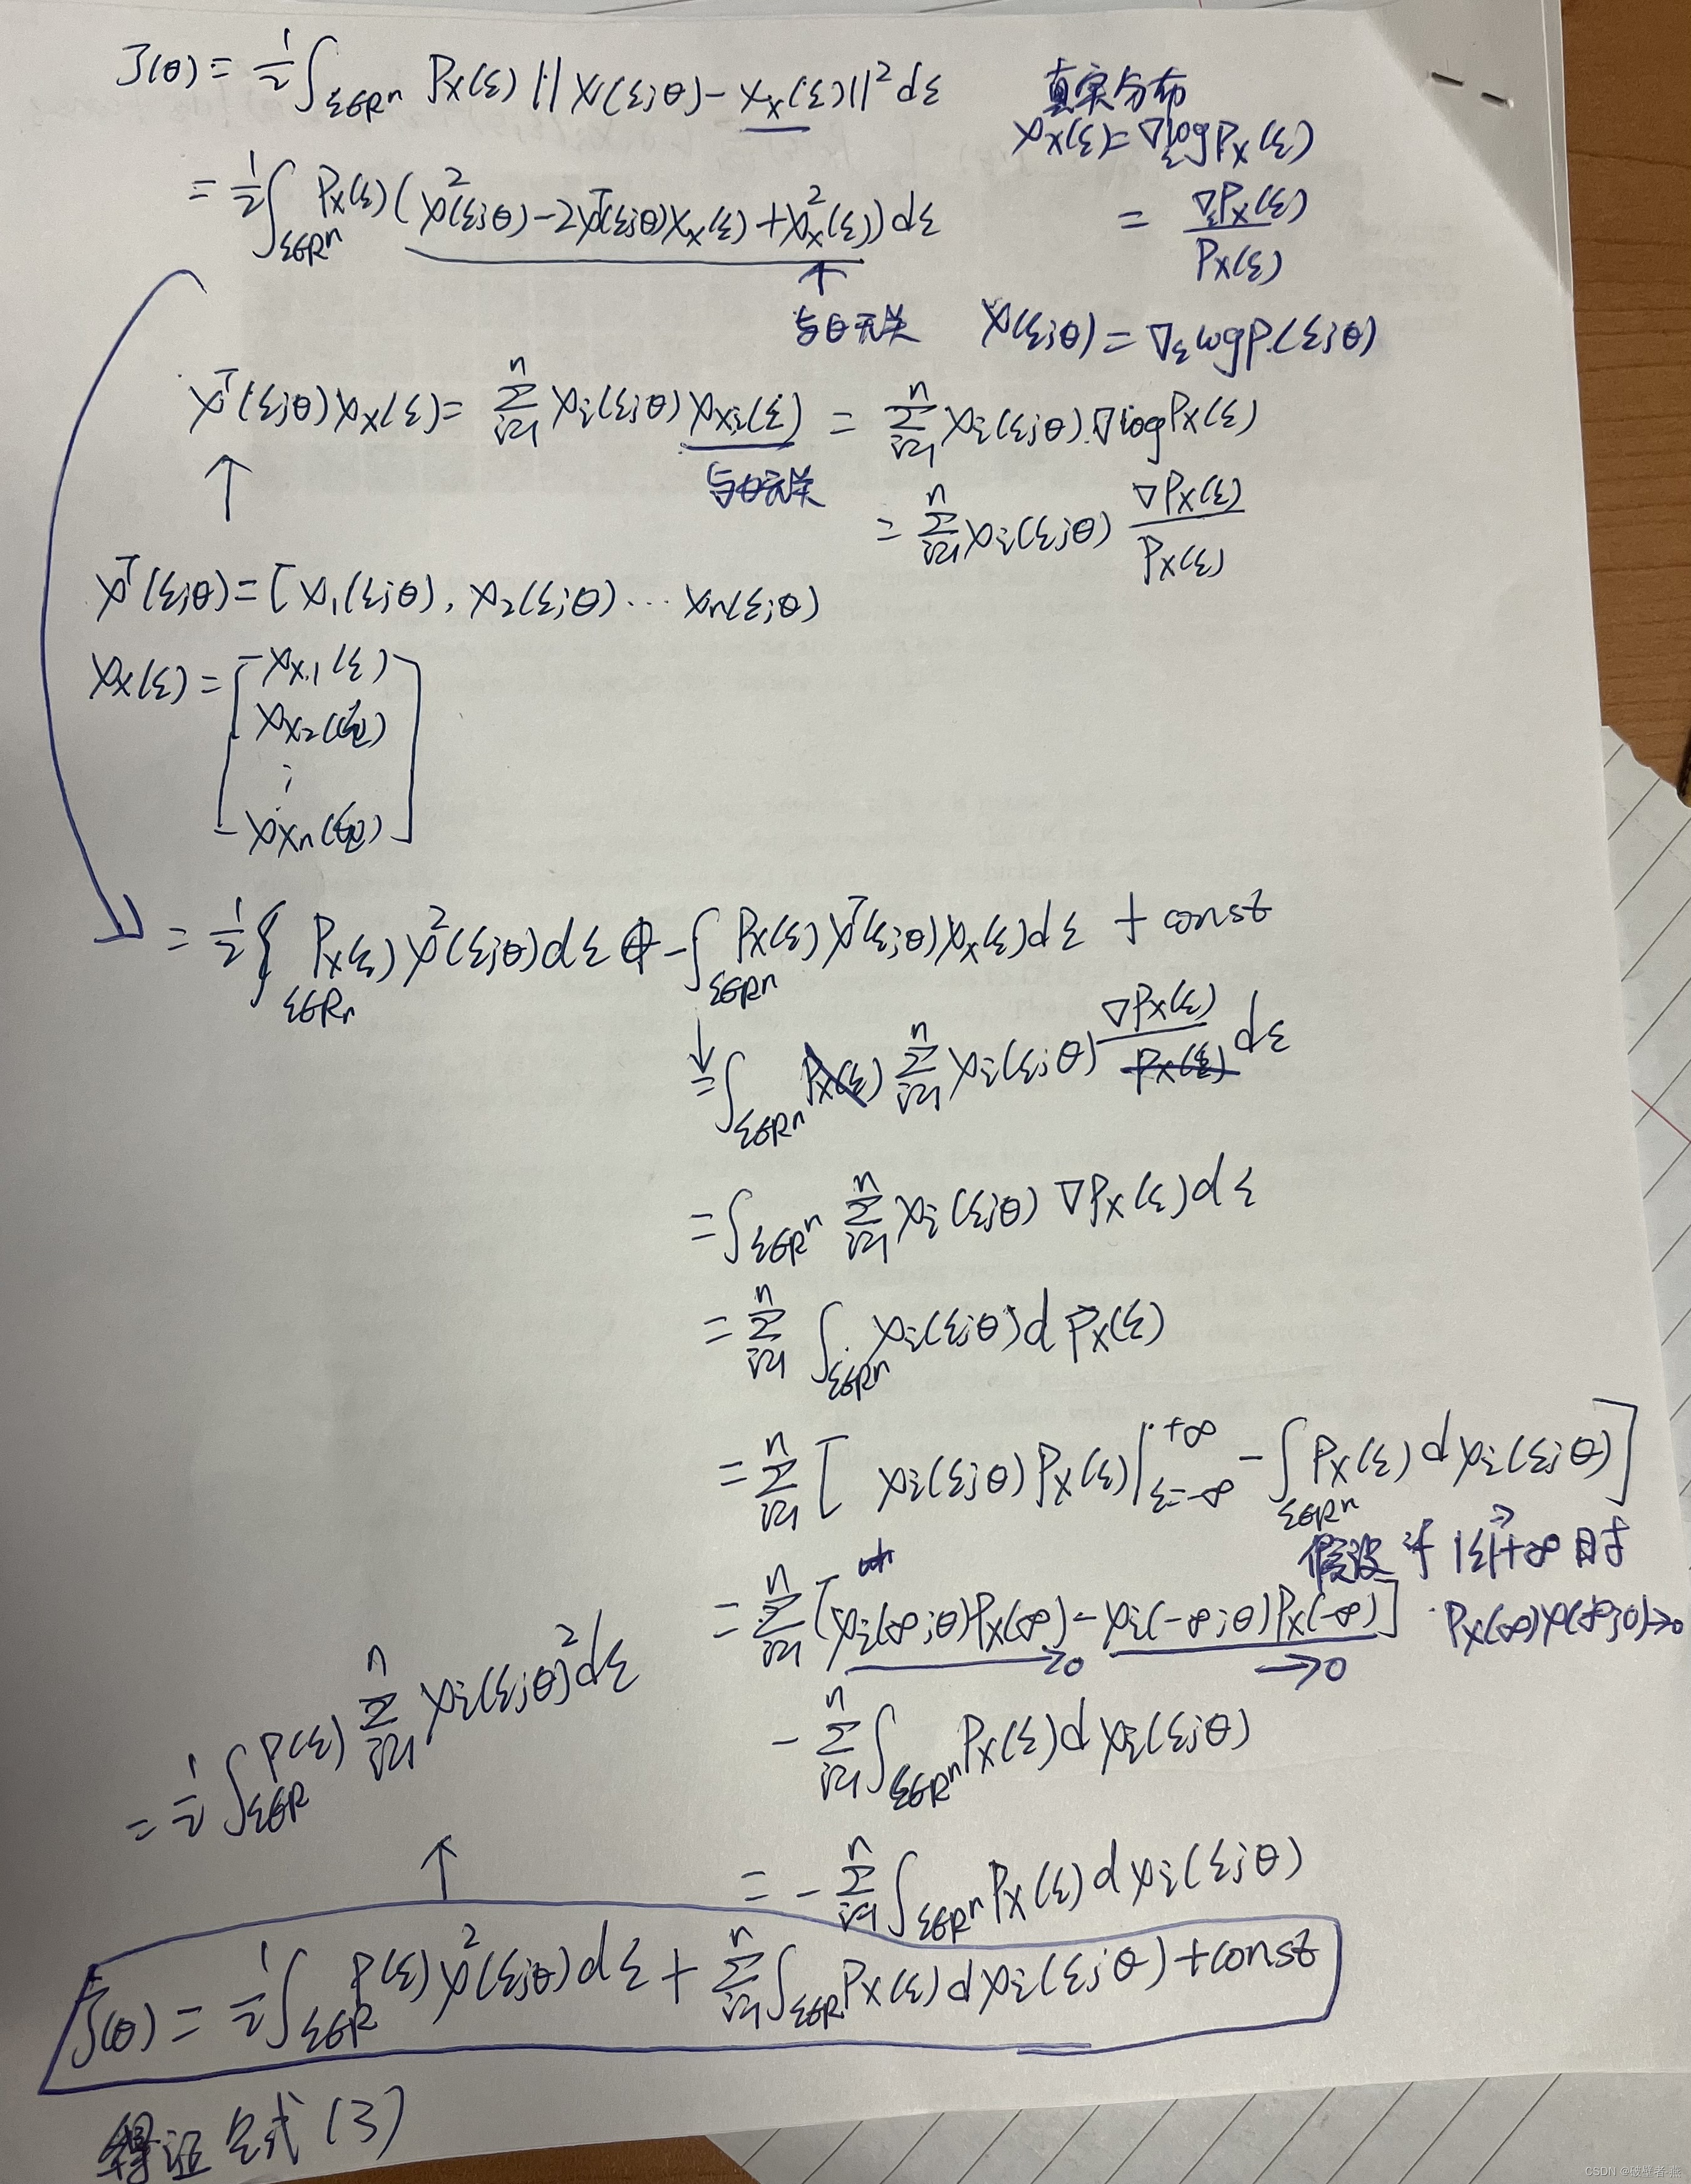 J(θ) = 1/2 ∫_{ξ∈Rⁿ} Pₓ(ξ) ||ψ(ξ;θ) − ψₓ(ξ)||² dξ
真实分布
ψₓ(ξ) = ∇_ξ log Pₓ(ξ)
= 1/2 ∫_{ξ∈Rⁿ} Pₓ(ξ) (ψ²(ξ;θ) − 2ψᵀ(ξ;θ)ψₓ(ξ) + ψₓ²(ξ)) dξ
= ∇_ξ Pₓ(ξ) / Pₓ(ξ)
与θ无关
ψ(ξ;θ) = ∇_ξ log P(ξ;θ)
ψᵀ(ξ;θ)ψₓ(ξ) = Σ_{i=1}^n ψᵢ(ξ;θ) ψ_{xi}(ξ) = Σ_{i=1}^n ψᵢ(ξ;θ) · ∇log Pₓ(ξ)
与θ无关
= Σ_{i=1}^n ψᵢ(ξ;θ) ∇Pₓ(ξ) / Pₓ(ξ)
ψᵀ(ξ;θ) = [ψ₁(ξ;θ), ψ₂(ξ;θ) ... ψn(ξ;θ)
ψₓ(ξ) = [ψ_{x,1}(ξ)
ψ_{x2}(ξ)
⋮
ψ_{xn}(ξ)]
= 1/2 ∫_{ξ∈Rn} Pₓ(ξ) ψ²(ξ;θ) dξ − ∫_{ξ∈Rⁿ} Pₓ(ξ) ψᵀ(ξ;θ) ψₓ(ξ) dξ + const
= ∫_{ξ∈Rⁿ} Pₓ(ξ) Σ_{i=1}^n ψᵢ(ξ;θ) ∇Pₓ(ξ) / Pₓ(ξ) dξ
= ∫_{ξ∈Rⁿ} Σ_{i=1}^n ψᵢ(ξ;θ) ∇Pₓ(ξ) dξ
= Σ_{i=1}^n ∫_{ξ∈Rⁿ} ψᵢ(ξ;θ) d Pₓ(ξ)
= Σ_{i=1}^n [ψᵢ(ξ;θ) Pₓ(ξ) |_{ξ=−∞}^{+∞} − ∫_{ξ∈Rⁿ} Pₓ(ξ) d ψᵢ(ξ;θ)]
假设 于 |ξ|→+∞ 时
= Σ_{i=1}^n [ψᵢ(∞;θ)Pₓ(∞) − ψᵢ(−∞;θ)Pₓ(−∞)]
Pₓ(∞)ψ(∞;θ)→0
→0 →0
− Σ_{i=1}^n ∫_{ξ∈Rⁿ} Pₓ(ξ) d ψᵢ(ξ;θ)
= 1/2 ∫_{ξ∈R} P(ξ) Σ_{i=1}^n ψᵢ(ξ;θ)² dξ
= − Σ_{i=1}^n ∫_{ξ∈Rⁿ} Pₓ(ξ) d ψᵢ(ξ;θ)
J(θ) = 1/2 ∫_{ξ∈R} P(ξ) ψ²(ξ;θ) dξ + Σ_{i=1}^n ∫_{ξ∈R} Pₓ(ξ) d ψᵢ(ξ;θ) + const
得证 公式 (3)
CSDN @破壁者-燕